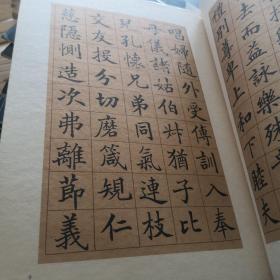 去而益詠樂殊
別尊卑上和下睦
唱婦隨外受傅訓入奉
母儀諸姑伯叔猶子比
兒孔懷兄弟同氣連枝
交友投分切磨箴規仁
慈隱惻造次弗離節義